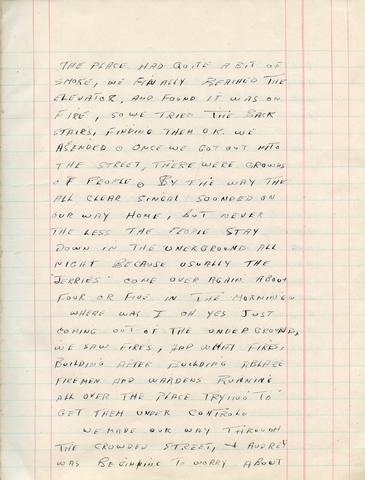 THE PLACE HAD QUITE A BIT OF
SMOKE, WE FINALLY REACHED THE
ELEVATOR, AND FOUND IT WAS ON
FIRE, SO WE TRIED THE BACK
STAIRS, FINDING THEM OK. WE
ASENDED. ONCE WE GOT OUT INTO
THE STREET, THERE WERE CROWDS
OF PEOPLE. BY THE WAY THE
ALL CLEAR SINGAL SOONDED ON
OUR WAY HOME, BUT NEVER
THE LESS THE PEOPLE STAY
DOWN IN THE UNERGROUND ALL
NIGHT BECAUSE USUALLY THE
"JERRIES" COME OVER AGAIN ABOUT
FOUR OR FIVE IN THE MORNING.
WHERE WAS I OH YES JUST
COMING OUT OF THE UNDERGROUND,
WE SAW FIRES, AND WHAT FIRES,
BUILDING AFTER BUILDING ABLAZE
FIREMEN AND WARDENS RUNNING
ALL OVER THE PLACE TRYING TO
GET THEM UNDER CONTROL.
WE MADE OUR WAY THROUGH
THE CROWDED STREET, + AUDREY
WAS BEGINNING TO WORRY ABOUT